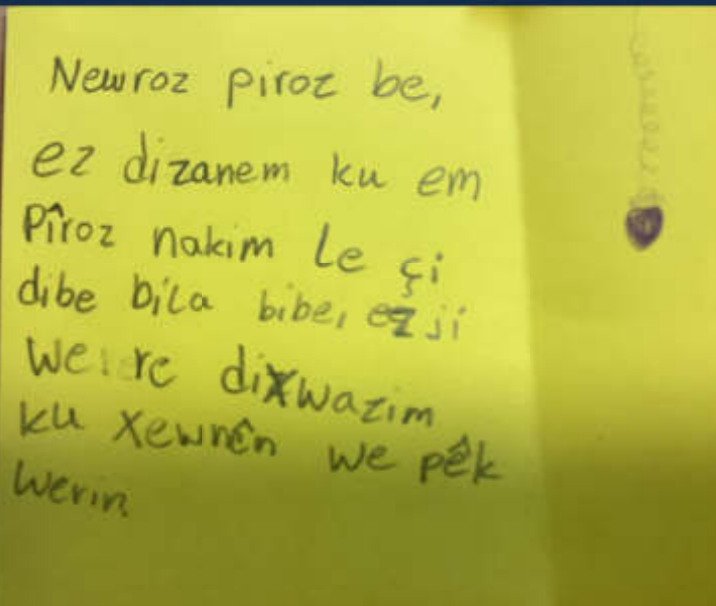 Newroz piroz be,
ez dizanem ku em
Pîroz nakim le çi
dibe bila bibe, ez ji
we re dixwazim
ku xewnên we pêk
werin